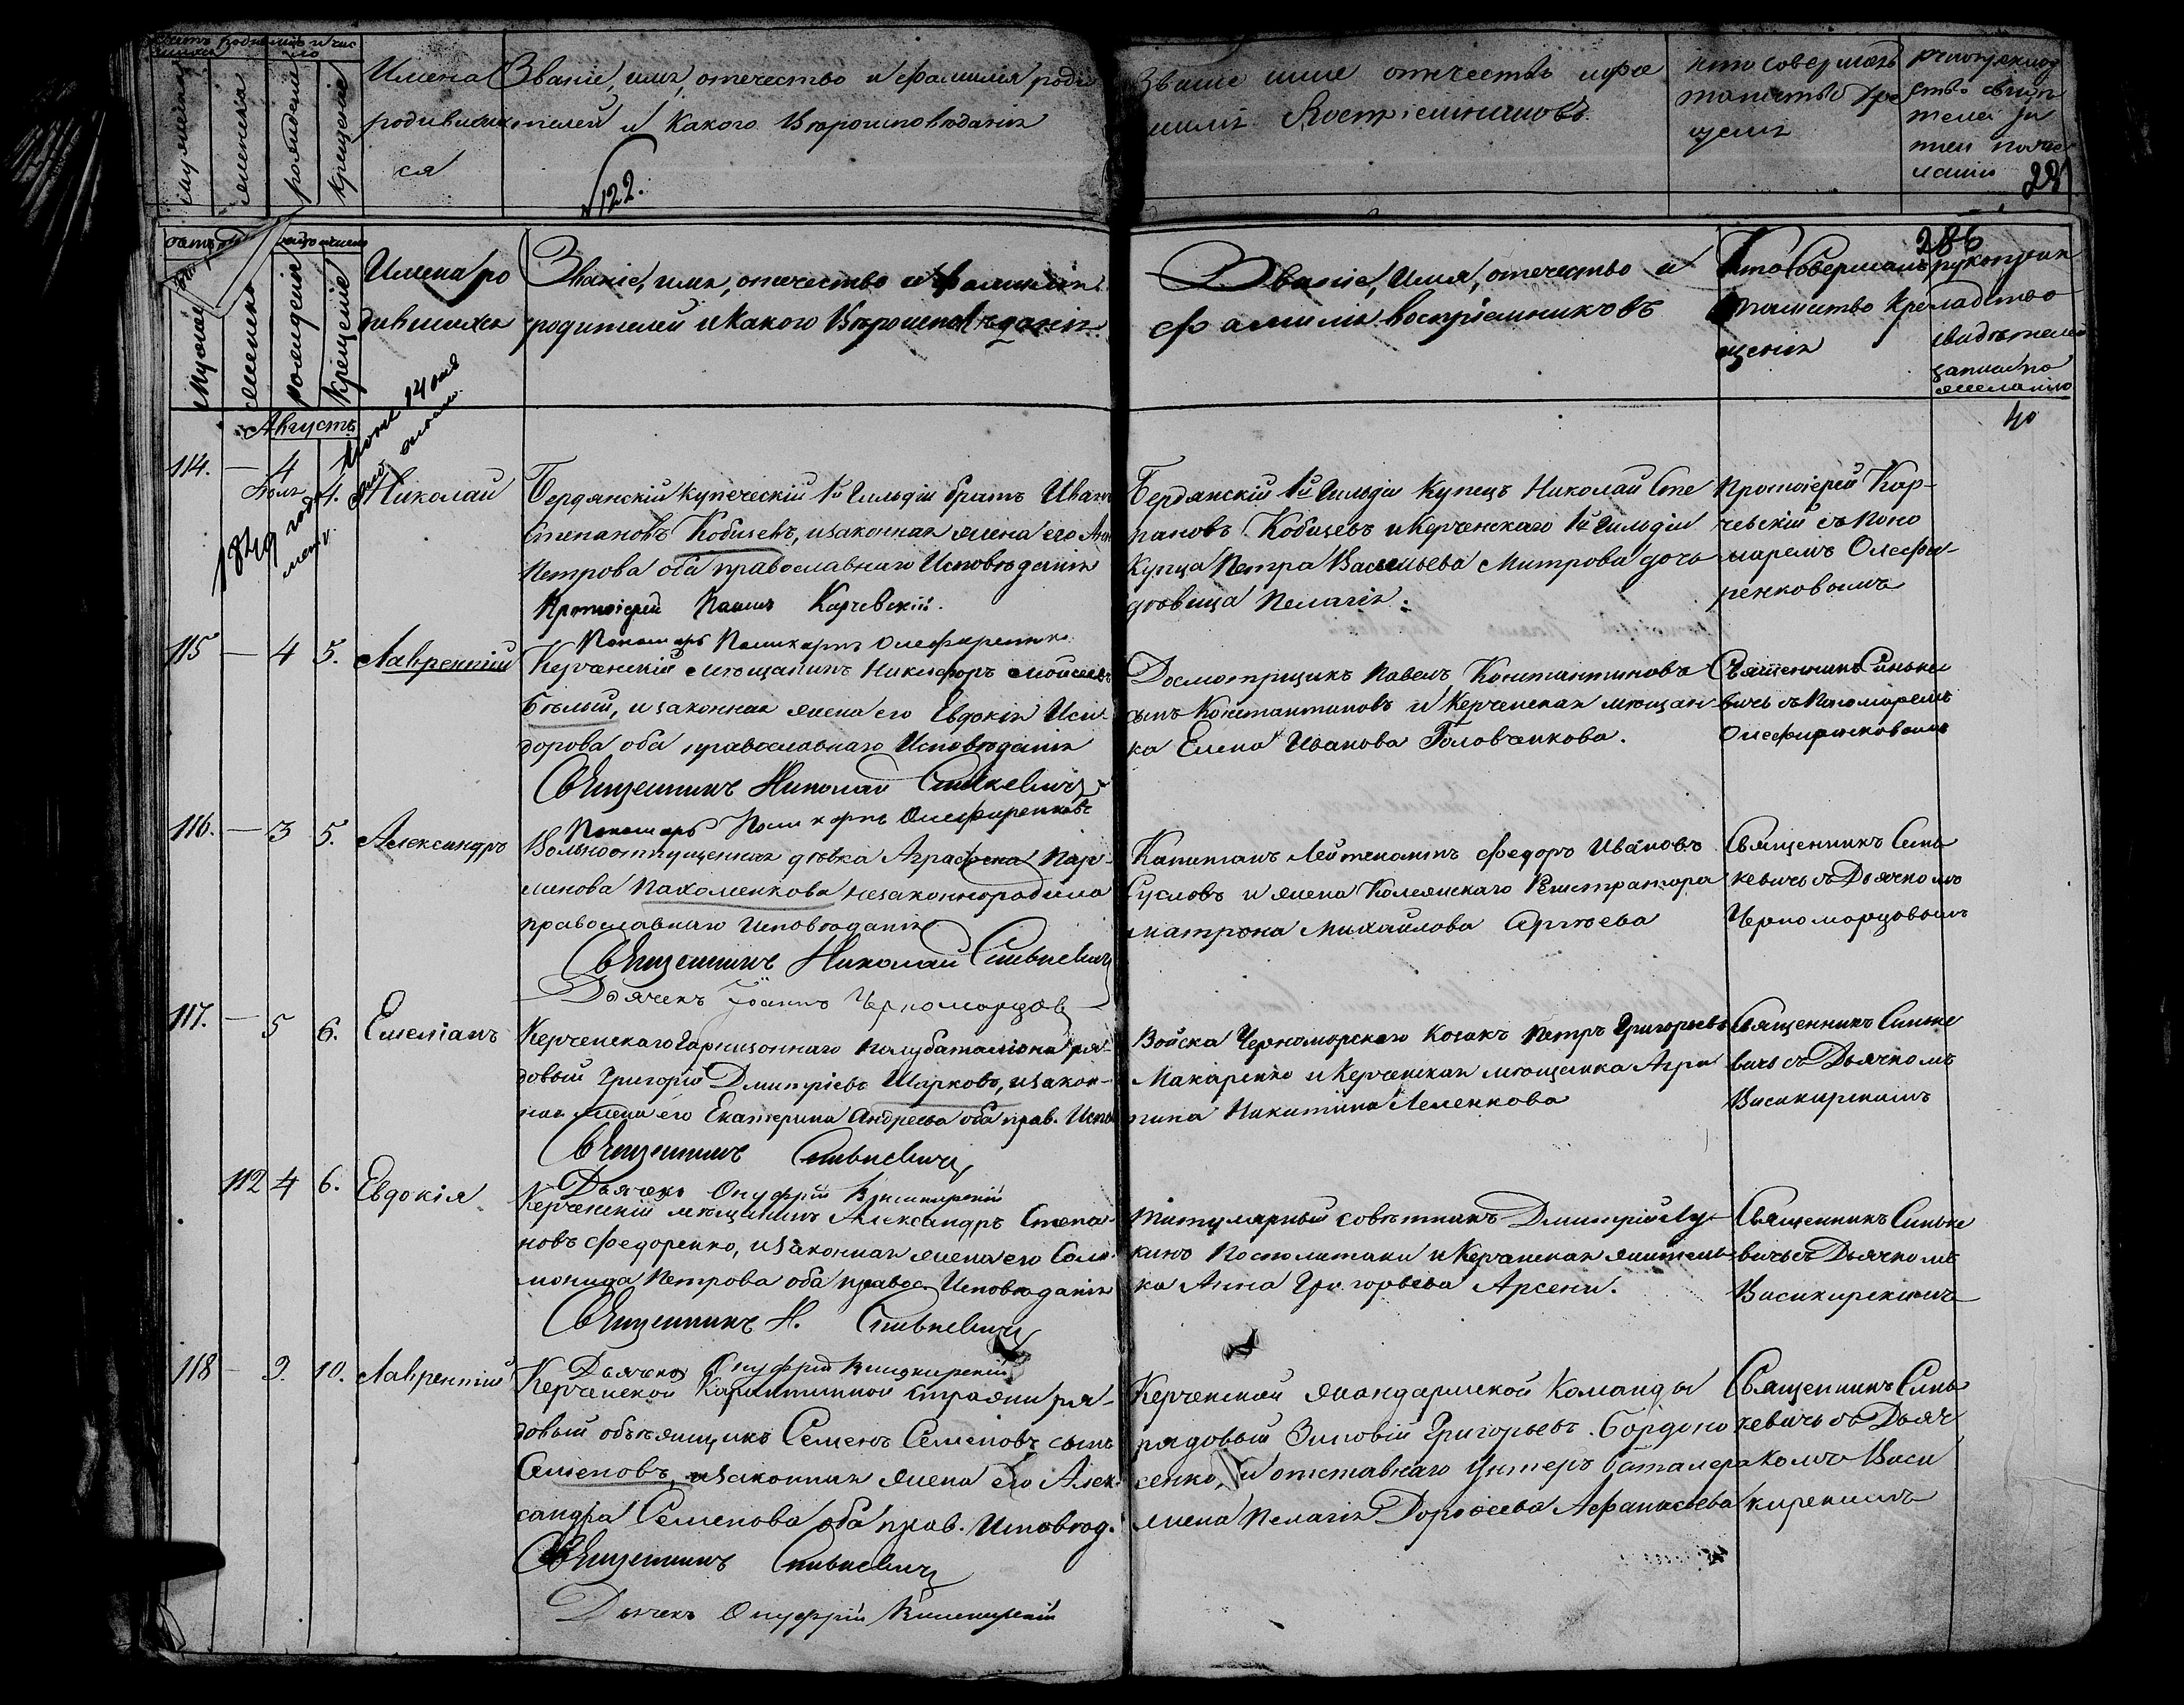 Имена
родивших
ся
Званіе, имя, отечество и фамилія роди
телей и какого Вѣроисповѣданія
№122.
Званіе имя отечество и фа
милія Воспріемниковъ
кто совершалъ
таинство кре
щенія
рукоприклад
ство свидѣ
телей за
писи по же
ланію
мужеска
женска
рожденія
крещенія
286
Имена ро
дившихся
Званіе, имя, отечество и фамилія
родителей и какого Вѣроисповѣданія
Званіе, Имя, отечество и
фамилія воспріемниковъ
Кто совершалъ
таинство Кре
щенія
рукоприк
ладство
свидѣтелей
записи по
желанію
Августъ
1849 года
114. — 4 4. Николай
Бердянскій купеческій 1й Гильдіи братъ Иванъ
Степановъ Кобызевъ, и законная жена его Анна
Петрова оба православнаго Исповѣданія
Протоіерей Павелъ Карчевскій.
Пономарь Поликарпъ Олефиренко
Бердянскій 1й Гильдіи Купецъ Николай Сте
пановъ Кобызевъ и Керченскаго 1й Гильдіи
Купца Петра Васильева Митрова дочь
дѣвица Пелагія.
Протоіерей Кар-
чевскій съ Поно
маремъ Олефи-
ренковымъ
115 — 4 5. Лаврентій
Керченскій мѣщанинъ Никифоръ Мойсеевъ
Бѣлый, и законная жена его Евдокія Иси-
дорова оба православнаго Исповѣданія
Священникъ Николай Синькевичъ
Пономарь Поликарпъ Олефиренковъ
Досмотрщикъ Павелъ Константиновъ
сынъ Константиновъ и Керченская мѣщан-
ка Елена Иванова Головченкова.
Священникъ Синьке
вичъ съ Пономаремъ
Олефиренковымъ
116. — 3 5. Александръ
Вольноотпущенная дѣвка Аграфена Пар-
менова Пахоменкова незаконнорадила
православнаго Исповѣданія
Священникъ Николай Синькевичъ
Дьячекъ Іоаннъ Черноморцов
Капитанъ Лейтенантъ Федоръ Ивановъ
Сусловъ и жена Колежскаго Регистратора
Матрона Михайлова Сергѣева
Священникъ Синь
кевичъ съ Дьячкомъ
Черноморцовымъ
117. — 5 6. Емеліанъ
Керченскаго Гарнизоннаго полубаталіона ря-
довый Григорій Дмитріевъ Шарковъ, и закон-
ная жена его Екатерина Андреева оба прав. Испо
Священникъ Синькевичъ
Дьячекъ Онуфрій Васикирскій
Войска Черноморскаго Козакъ Петръ Григорьевъ
Макаренко и Керченская мѣщанка Агри
пина Никитина Леменкова
Священникъ Синьке
вичъ съ Дьячкомъ
Васикирскимъ
112 4 6. Евдокія
Керченскій мѣщанинъ Александръ Степа-
новъ Федоренко, и законная жена его Соло-
монида Петрова оба правос. Исповѣданія
Священникъ Н. Синькевичъ
Дьячекъ Онуфрій Васикирскій
Титулярный совѣтникъ Дмитрій Лу-
кинъ Постолитаки и Керченская житель-
ка Анна Григорьева Арсени.
Священникъ Синьке
вичъ съ Дьячкомъ
Васикирскимъ
118 — 9. 10. Лаврентій
Керченской Карантинной Стражи ря-
довый объѣзщикъ Семенъ Семеновъ сынъ
Семеновъ, и законная жена его Алек-
сандра Семенова оба прав. Исповѣд.
Священникъ Синькевичъ
Дьячекъ Онуфрій Васикирскій
Керченской жандармской Команды
рядовый Зиновій Григорьевъ Бордоно
сенко, и отставнаго Унтеръ баталера
жена Пелагія Дорофеева Афанасьева
Священникъ Синь
кевичъ съ Дьяч
комъ Васи
кирскимъ